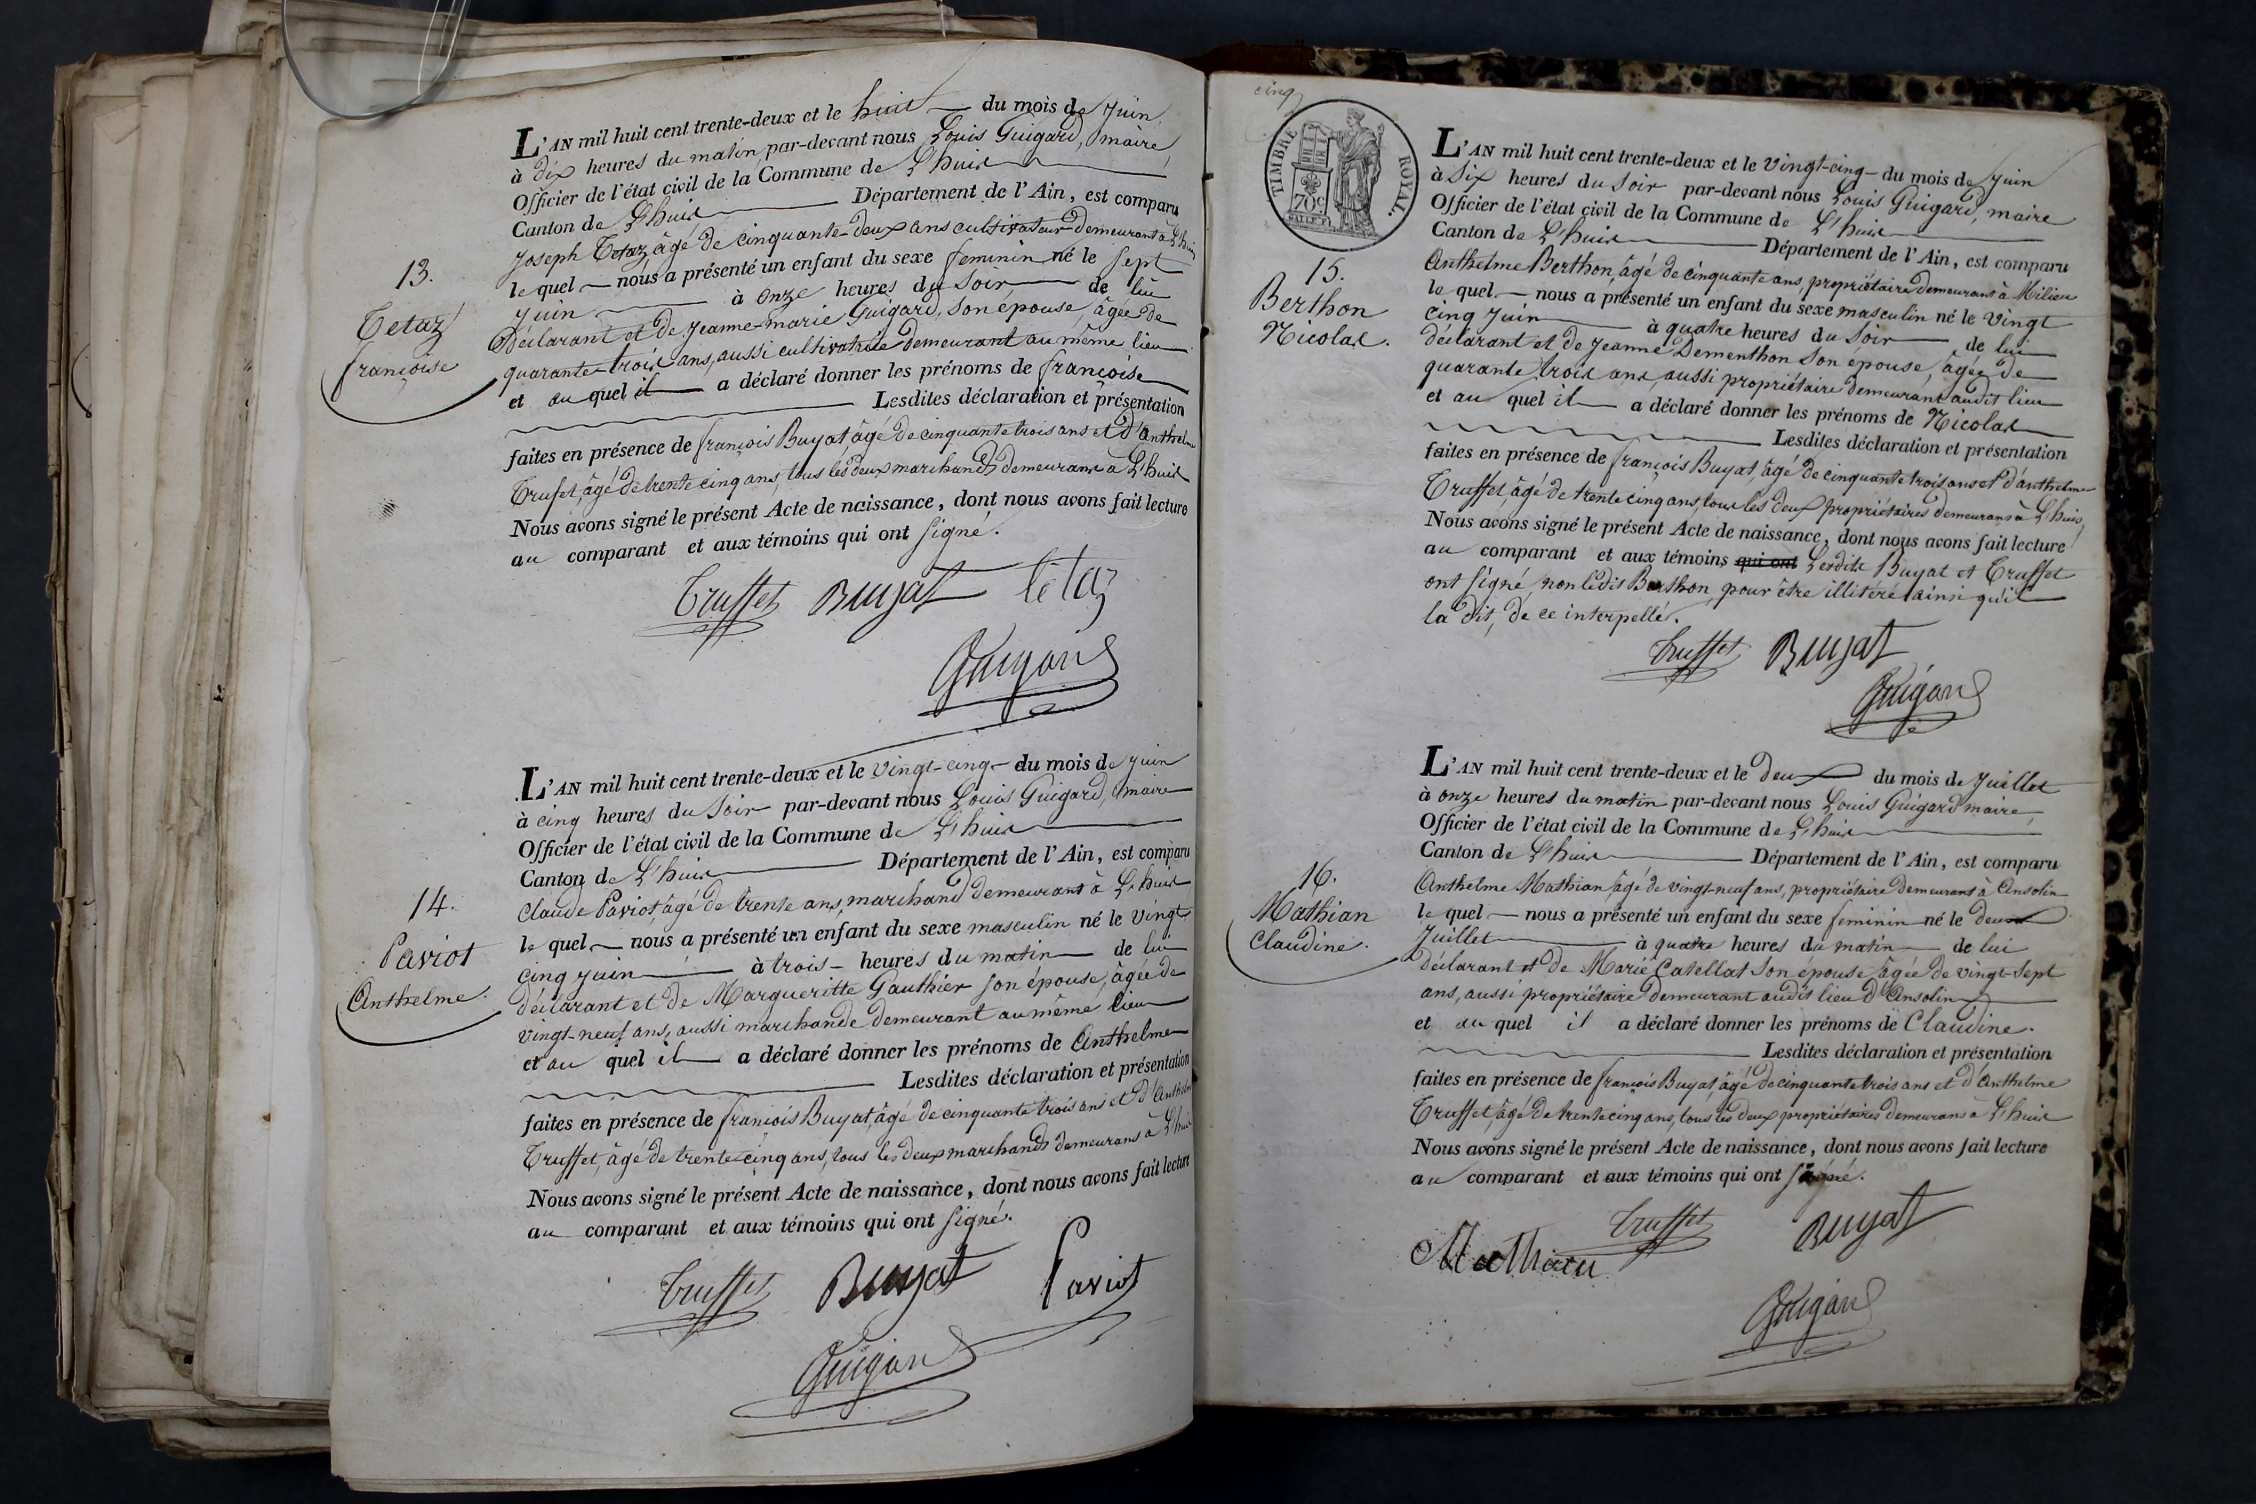 13.
Tetaz
françoise
L'AN mil huit cent trente-deux et le huit du mois de Juin
à dix heures du matin par-devant nous Louis Guigard, maire,
Officier de l'état civil de la Commune de L'huis
Canton de L'huis Département de l'Ain, est comparu
Joseph Tetaz, âgé de cinquante-deux ans cultivateur demeurant à L'huis
le quel nous a présenté un enfant du sexe feminin né le sept
Juin à onze heures du Soir de lui
Déclarant et de Jeanne-marie Guigard, son épouse, âgée de
quarante-trois ans, aussi cultivatrice demeurant au même lieu
et au quel il a déclaré donner les prénoms de françoise
Lesdites déclaration et présentation
faites en présence de françois Buyat âgé de cinquante trois ans et d'Anthelme
Trufet, âgé de trente cinq ans, tous les deux marchands demeurans à L'huis
Nous avons signé le présent Acte de naissance, dont nous avons fait lecture
au comparant et aux témoins qui ont signé.
Truffet Buyat tétaz
Guigard
14.
Paviot
Anthelme.
L'AN mil huit cent trente-deux et le vingt-cinq du mois de juin
à cinq heures du Soir par-devant nous Louis Guigard, maire
Officier de l'état civil de la Commune de L'huis
Canton de L'huis Département de l'Ain, est comparu
Claude Paviot, âgé de trente ans, marchand demeurant à L'huis
le quel nous a présenté un enfant du sexe masculin né le vingt
cinq juin à trois heures du matin de lui
déclarant et de Margueritte Gauthier son épouse, âgée de
vingt-neuf ans, aussi marchande demeurant au même lieu
et au quel il a déclaré donner les prénoms de Anthelme
Lesdites déclaration et présentation
faites en présence de françois Buyat, âgé de cinquante trois ans et d'Anthelme
Truffet, âgé de trente-cinq ans, tous les deux marchands demeurans à L'huis
Nous avons signé le présent Acte de naissance, dont nous avons fait lecture
au comparant et aux témoins qui ont signé.
Truffet Buyat Paviot
Guigard
cinq
TIMBRE ROYAL.
70c
15.
Berthon
Nicolas.
L'AN mil huit cent trente-deux et le vingt-cinq du mois de Juin
à Six heures du Soir par-devant nous Louis Guigard, maire
Officier de l'état civil de la Commune de L'huis
Canton de L'huis Département de l'Ain, est comparu
Anthelme Berthon, âgé de cinquante ans, propriétaire demeurant à Milieu
le quel nous a présenté un enfant du sexe masculin né le vingt
cinq Juin à quatre heures du Soir de lui
déclarant et de Jeanne Dementhon son épouse, âgée de
quarante trois ans, aussi propriétaire demeurant audit lieu
et au quel il a déclaré donner les prénoms de Nicolas
Lesdites déclaration et présentation
faites en présence de françois Buyat, âgé de cinquante trois ans et d'anthelme
Truffet, âgé de trente cinq ans, tous les deux propriétaires demeurans à L'huis,
Nous avons signé le présent Acte de naissance, dont nous avons fait lecture
au comparant et aux témoins qui ont Lesdits Buyat et Truffet
ont signé, non ledit Berthon, pour être illitéré ainsi qu'il
la dit, de ce interpellé.
Truffet Buyat
Guigard
16.
Mathian
Claudine.
L'AN mil huit cent trente-deux et le deux du mois de Juillet
à onze heures du matin par-devant nous Louis Guigard maire,
Officier de l'état civil de la Commune de L'huis
Canton de L'huis Département de l'Ain, est comparu
Anthelme Mathian, âgé de vingt-neuf ans, propriétaire demeurant à Ansolin
le quel nous a présenté un enfant du sexe feminin né le deux
Juillet à quatre heures du matin de lui
déclarant et de Marie Catellat son épouse âgée de vingt-sept
ans, aussi propriétaire demeurant audit lieu d'Ansolin
et au quel il a déclaré donner les prénoms de Claudine.
Lesdites déclaration et présentation
faites en présence de françois Buyat, âgé de cinquante trois ans et d'Anthelme
Truffet, âgé de trente cinq ans, tous les deux propriétaires demeurans à L'huis
Nous avons signé le présent Acte de naissance, dont nous avons fait lecture
au comparant et aux témoins qui ont signé.
Truffet Buyat
Mathian
Guigard